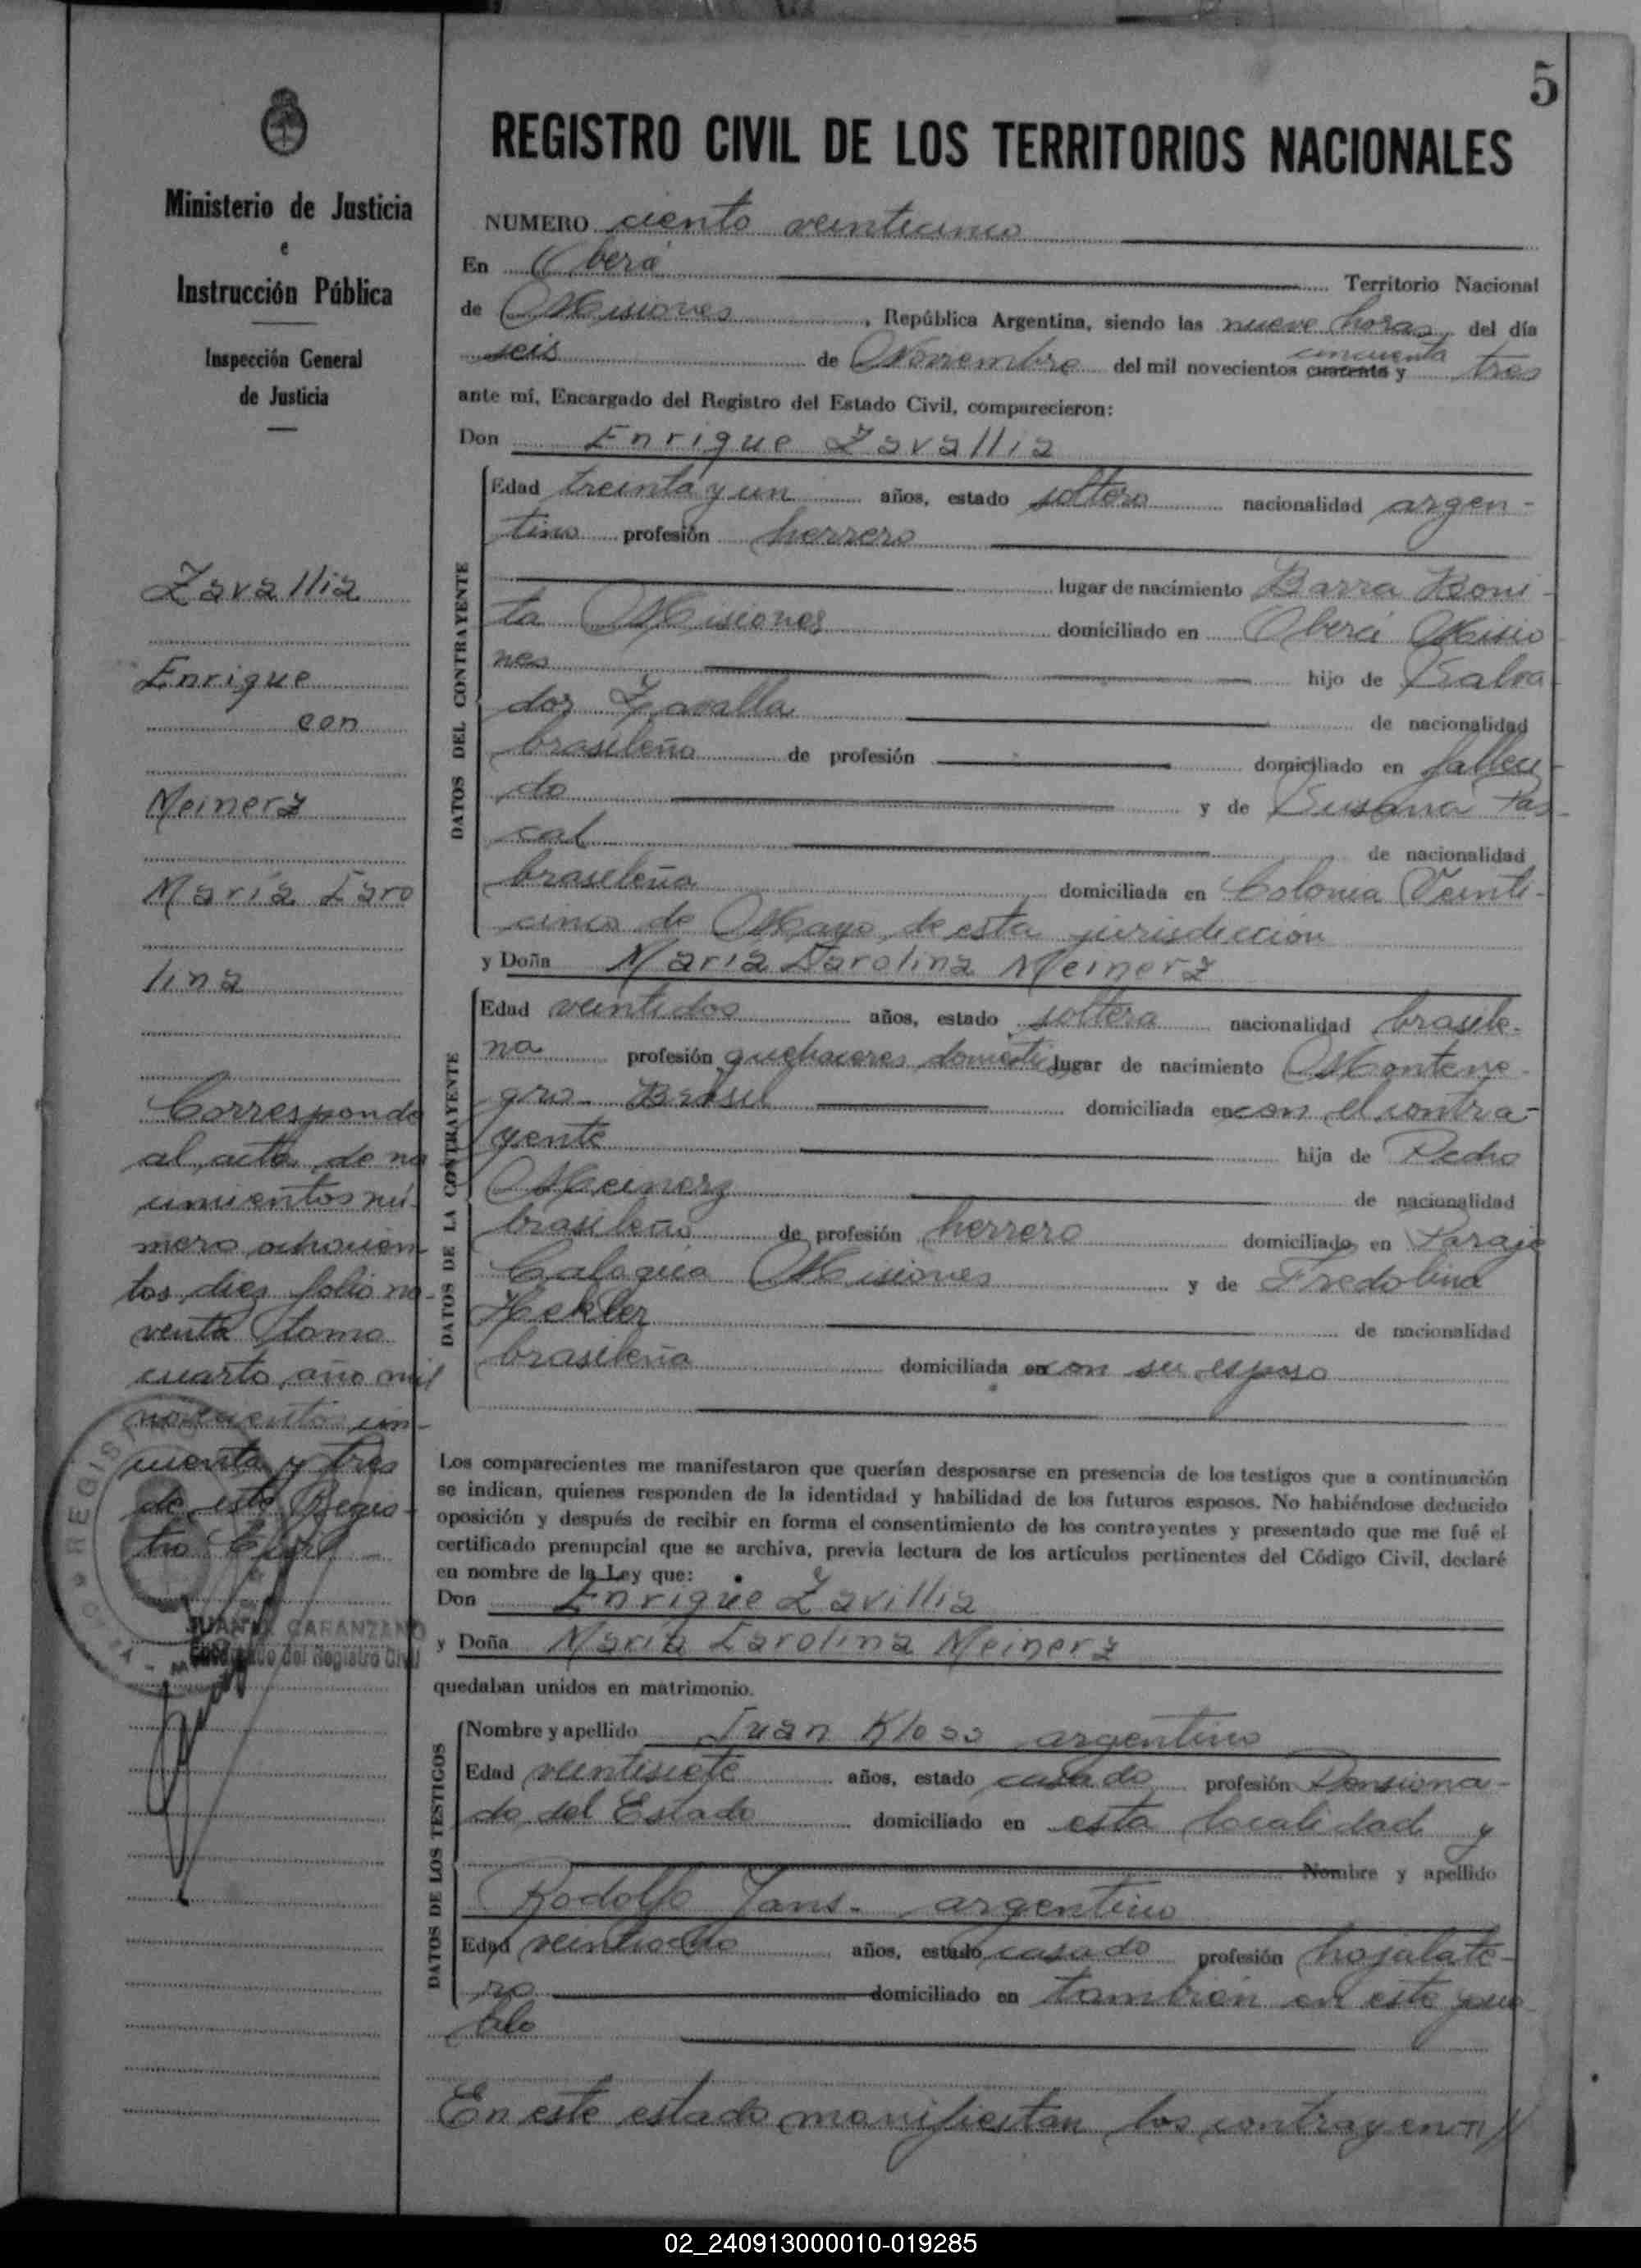 5
REGISTRO CIVIL DE LOS TERRITORIOS NACIONALES
Ministerio de Justicia
e
Instrucción Pública
Inspección General
de Justicia
Zavallia
Enrique
con
Meinerz
María Caro
lina
Corresponde
al acta de na
cimientos nú-
mero ochocien
tos diez folio no-
venta tomo
cuarto, año mil
novecientos cin-
cuenta y tres
de este Regis-
tro Civil
JUAN CARANZANO
Encargado del Registro Civil
NUMERO ciento veinticinco
En Oberá Territorio Nacional
de Misiones, República Argentina, siendo las nueve horas del día
seis de Noviembre del mil novecientos cuarenta y cincuenta tres
ante mí, Encargado del Registro del Estado Civil, comparecieron:
Don Enrique Zavallia
DATOS DEL CONTRAYENTE
Edad treinta y un años, estado soltero nacionalidad argen-
tino profesión herrero
lugar de nacimiento Barra Boni-
ta Misiones domiciliado en Oberá Misio
nes hijo de Salva
dor Zavalla de nacionalidad
brasileña de profesión domiciliado en falleci-
do y de Susana Pas-
cal de nacionalidad
brasileña domiciliada en Colonia Veinti-
cinco de Mayo de esta jurisdicción
y Doña María Carolina Meinerz
DATOS DE LA CONTRAYENTE
Edad veintidos años, estado soltera nacionalidad brasile-
na profesión quehaceres domésti lugar de nacimiento Montene-
gro- Brasil domiciliada en con el contra-
yente hija de Pedro
Meinerz de nacionalidad
brasileña de profesión herrero domiciliado en Paraje
Misiones y de Fredolina
Hekler de nacionalidad
brasileña domiciliada en con su esposo
Los comparecientes me manifestaron que querían desposarse en presencia de los testigos que a continuación
se indican, quienes responden de la identidad y habilidad de los futuros esposos. No habiéndose deducido
oposición y después de recibir en forma el consentimiento de los contrayentes y presentado que me fué el
certificado prenupcial que se archiva, previa lectura de los artículos pertinentes del Código Civil, declaré
en nombre de la Ley que:
Don Enrique Zavillia
y Doña María Carolina Meinerz
quedaban unidos en matrimonio.
DATOS DE LOS TESTIGOS
Nombre y apellido Juan Kloss argentino
Edad veintisiete años, estado casado profesión Pensiona-
do del Estado domiciliado en esta localidad y
Nombre y apellido
Rodolfo Jans- argentino
Edad veintiocho años, estado casado profesión hojalate-
ro domiciliado en también en este pue
blo
En este estado manifiestan los contrayen
02_240913000010-019285